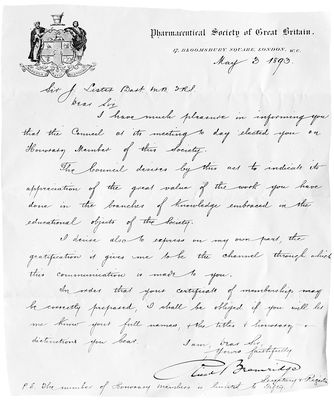 Pharmaceutical Society of Great Britain.
17, BLOOMSBURY SQUARE, LONDON, W.C.
May 3 1893.
Sir J. Lister Bart M.B. F.R.S.
Dear Sir
I have much pleasure in informing you
that the Council at its meeting to day elected you an
Honorary Member of this Society.
The Council desires by this act to indicate its
appreciation of the great value of the work you have
done in the branches of knowledge embraced in the
educational objects of the Society.
I desire also to express on my own part, the
gratification it gives me to be the channel through which
this communication is made to you.
In order that your certificate of membership may
be correctly prepared, I shall be obliged if you will let
me know your full names, & the titles & honorary
distinctions you bear.
I am, Dear Sir,
Yours faithfully
Bremridge
Secretary & Registrar
P.S. The number of Honorary Members is limited to fifty.